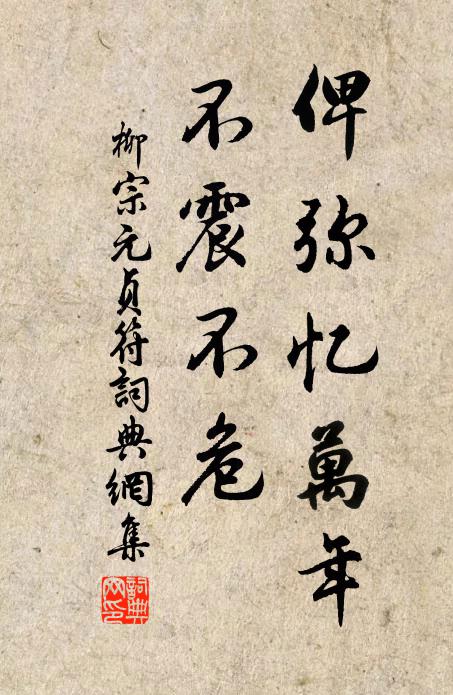 俾弥忆萬年
不震不危
柳宗元貞符詞典網集
詞典網印